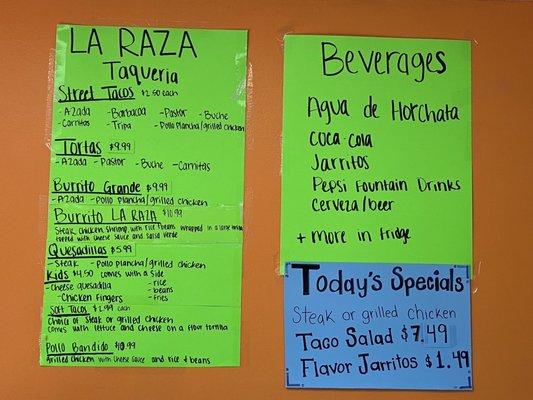 LA RAZA
Taqueria
Street Tacos $2.50 each
-Azada -Barbacoa -Pastor -Buche
-Carnitas -Tripa -Pollo Plancha/grilled chicken
Tortas $9.99
-Azada -Pastor -Buche -Carnitas
Burrito Grande $9.99
-Azada -Pollo plancha/grilled chicken
Burrito LA RAZA $10.99
Steak, Chicken, Shrimp, with Rice & beans wrapped in a large
topped with cheese sauce and salsa verde
Quesadillas $5.99
-Steak -Pollo plancha/grilled chicken
Kids $4.50 comes with a side
-Cheese quesadilla -rice
-beans
-Chicken fingers -fries
Soft Tacos $2.99 each
Choice of Steak or grilled chicken
comes with lettuce and cheese on a flour tortilla
Pollo Bandido $10.99
Grilled chicken with cheese sauce and rice & beans
Beverages
Agua de Horchata
coca-cola
Jarritos
Pepsi Fountain Drinks
cerveza/beer
+ more in fridge
Today's Specials
Steak or grilled chicken
Taco Salad $7.49
Flavor Jarritos $1.49